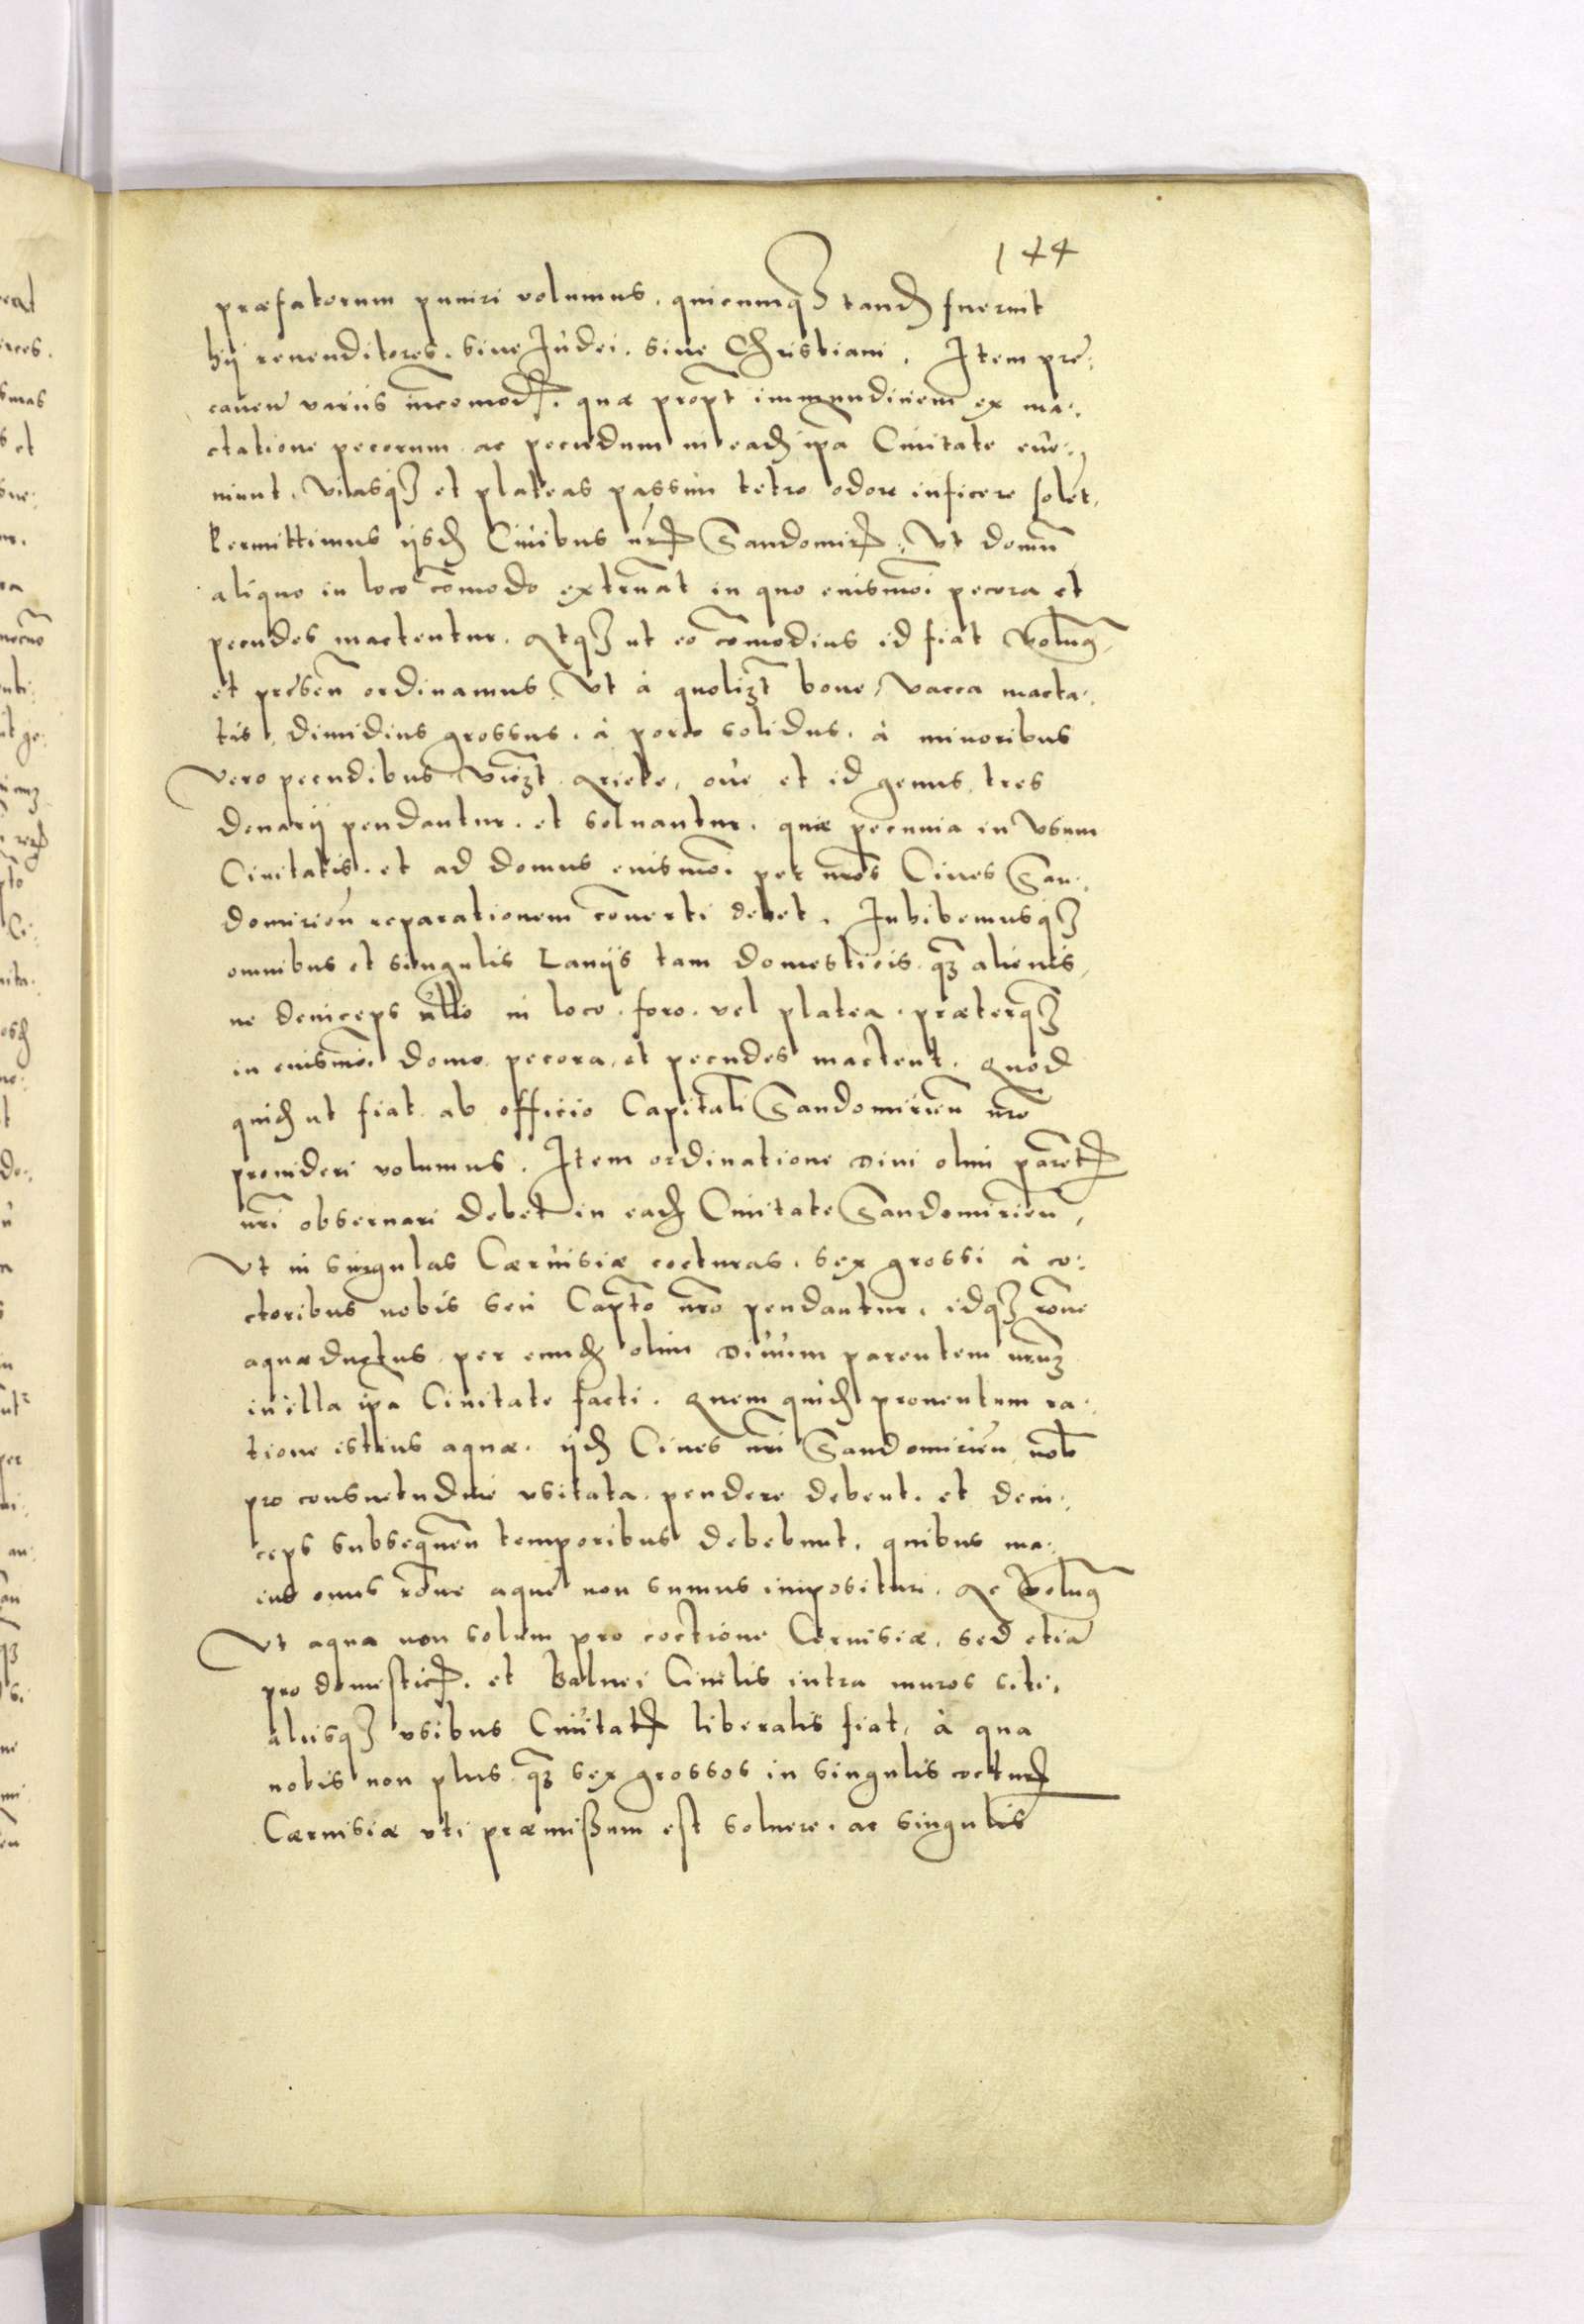 144
præfatorum puniri volumus, quicumqꝫ tandẽ fuerint
hÿ reuenditores, siue Iudei, siue Christiani. Item præ:
cauen̄ varÿs incomod̄. quæ propt̄ immundiciem ex ma:
ctatione pecorum ac pecudum in eadẽ ip̄a Ciuitate eue:
niunt, viasqꝫ et plateas passim tetro odore inficere solet.
Permittimus ÿsdẽ Ciuibus nr̄is Sandomir̄. Vt domũ
aliquo in loco cõmodo extruãt in quo eiusmõi pecora et
pecudes mactentur. Atqꝫ ut eo cõmodius id fiat Volumꝰ
et presen̄ ordinamus, Vt à quolibꝫt boue, vacca macta:
tis, dimidius grossus, à porco solidus, à minoribus
vero pecudibus vicꝫt Ariete, oue et id genus, tres
denarÿ pendantur, et soluantur, quæ pecunia in vsum
Ciuitatis, et ad domus eiusmõi per nr̄os Ciues San:
domirien̄ reparationem cõuerti debet. Inhibemusqꝫ
omnibus et singulis Lanÿs tam domesticis qꝫ alienis,
ne deinceps ullo in loco, foro, vel platea, præterqꝫ
in eiusmõi domo pecora, et pecudes mactent. Quod
quidẽ ut fiat ab officio Capitali Sandomirien̄ nr̄o
prouideri volumus. Item ordinatione Diui olim parent̄
nr̄i obseruari debet in eadẽ Ciuitate Sandomirien̄,
Vt in singulas Cæruisiæ cocturas, sex grossi à co:
ctoribus nobis seu Capt̄o nr̄o pendantur, idqꝫ rõne
aquæductus per eundẽ olim Diuum parentem nr̄umꝫ
in illa ip̄a Ciuitate facti. Quem quidẽ prouentum ra:
tione istius aquæ, ÿdẽ Ciues nr̄i Sandomirien̄ nob̄
pro consuetudine vsitata pendere debent, et dein:
ceps subsequen̄ temporibus debebunt, quibus ma:
ius onus rõne aque non sumus imposituri. Ac Volumꝰ
Vt aqua non solum pro coctione Ceruisiæ, sed etiã
pro domestic̄. et Balnei Ciuilis intra muros siti,
alÿsqꝫ vsibus Ciuitat̄ liberalis fiat, à qua
nobis non plus qꝫ sex grossos in singulis coctur̄
Cæruisiæ vti præmißum est soluere, ac singulis